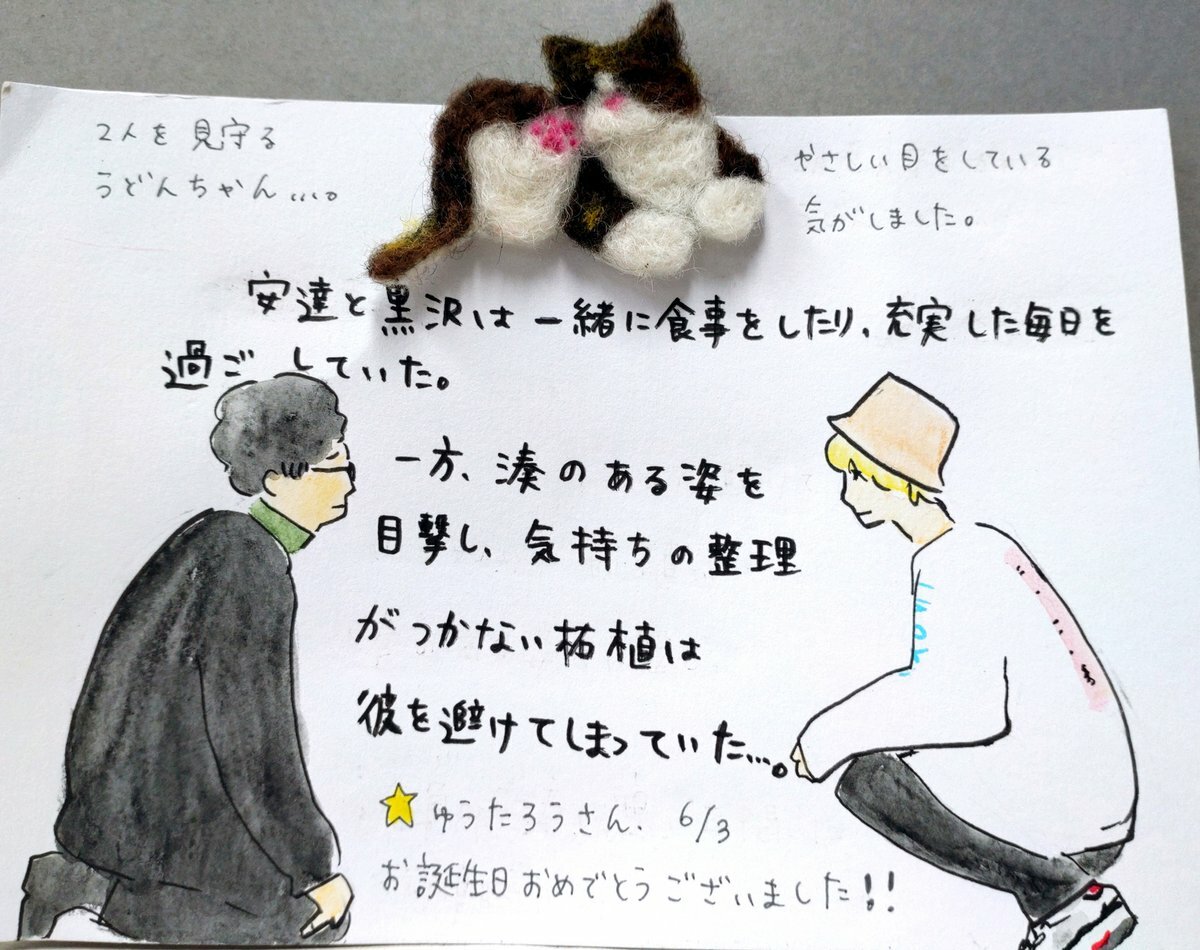 2人を見守る
うどんちゃん…。
やさしい目をしている
気がしました。
安達と黒沢は一緒に食事をしたり、充実した毎日を
過ごしていた。
一方、湊のある姿を
目撃し、気持ちの整理
がつかない柘植は
彼を避けてしまっていた…。
ゆうたろうさん、6/3
お誕生日おめでとうございました!!